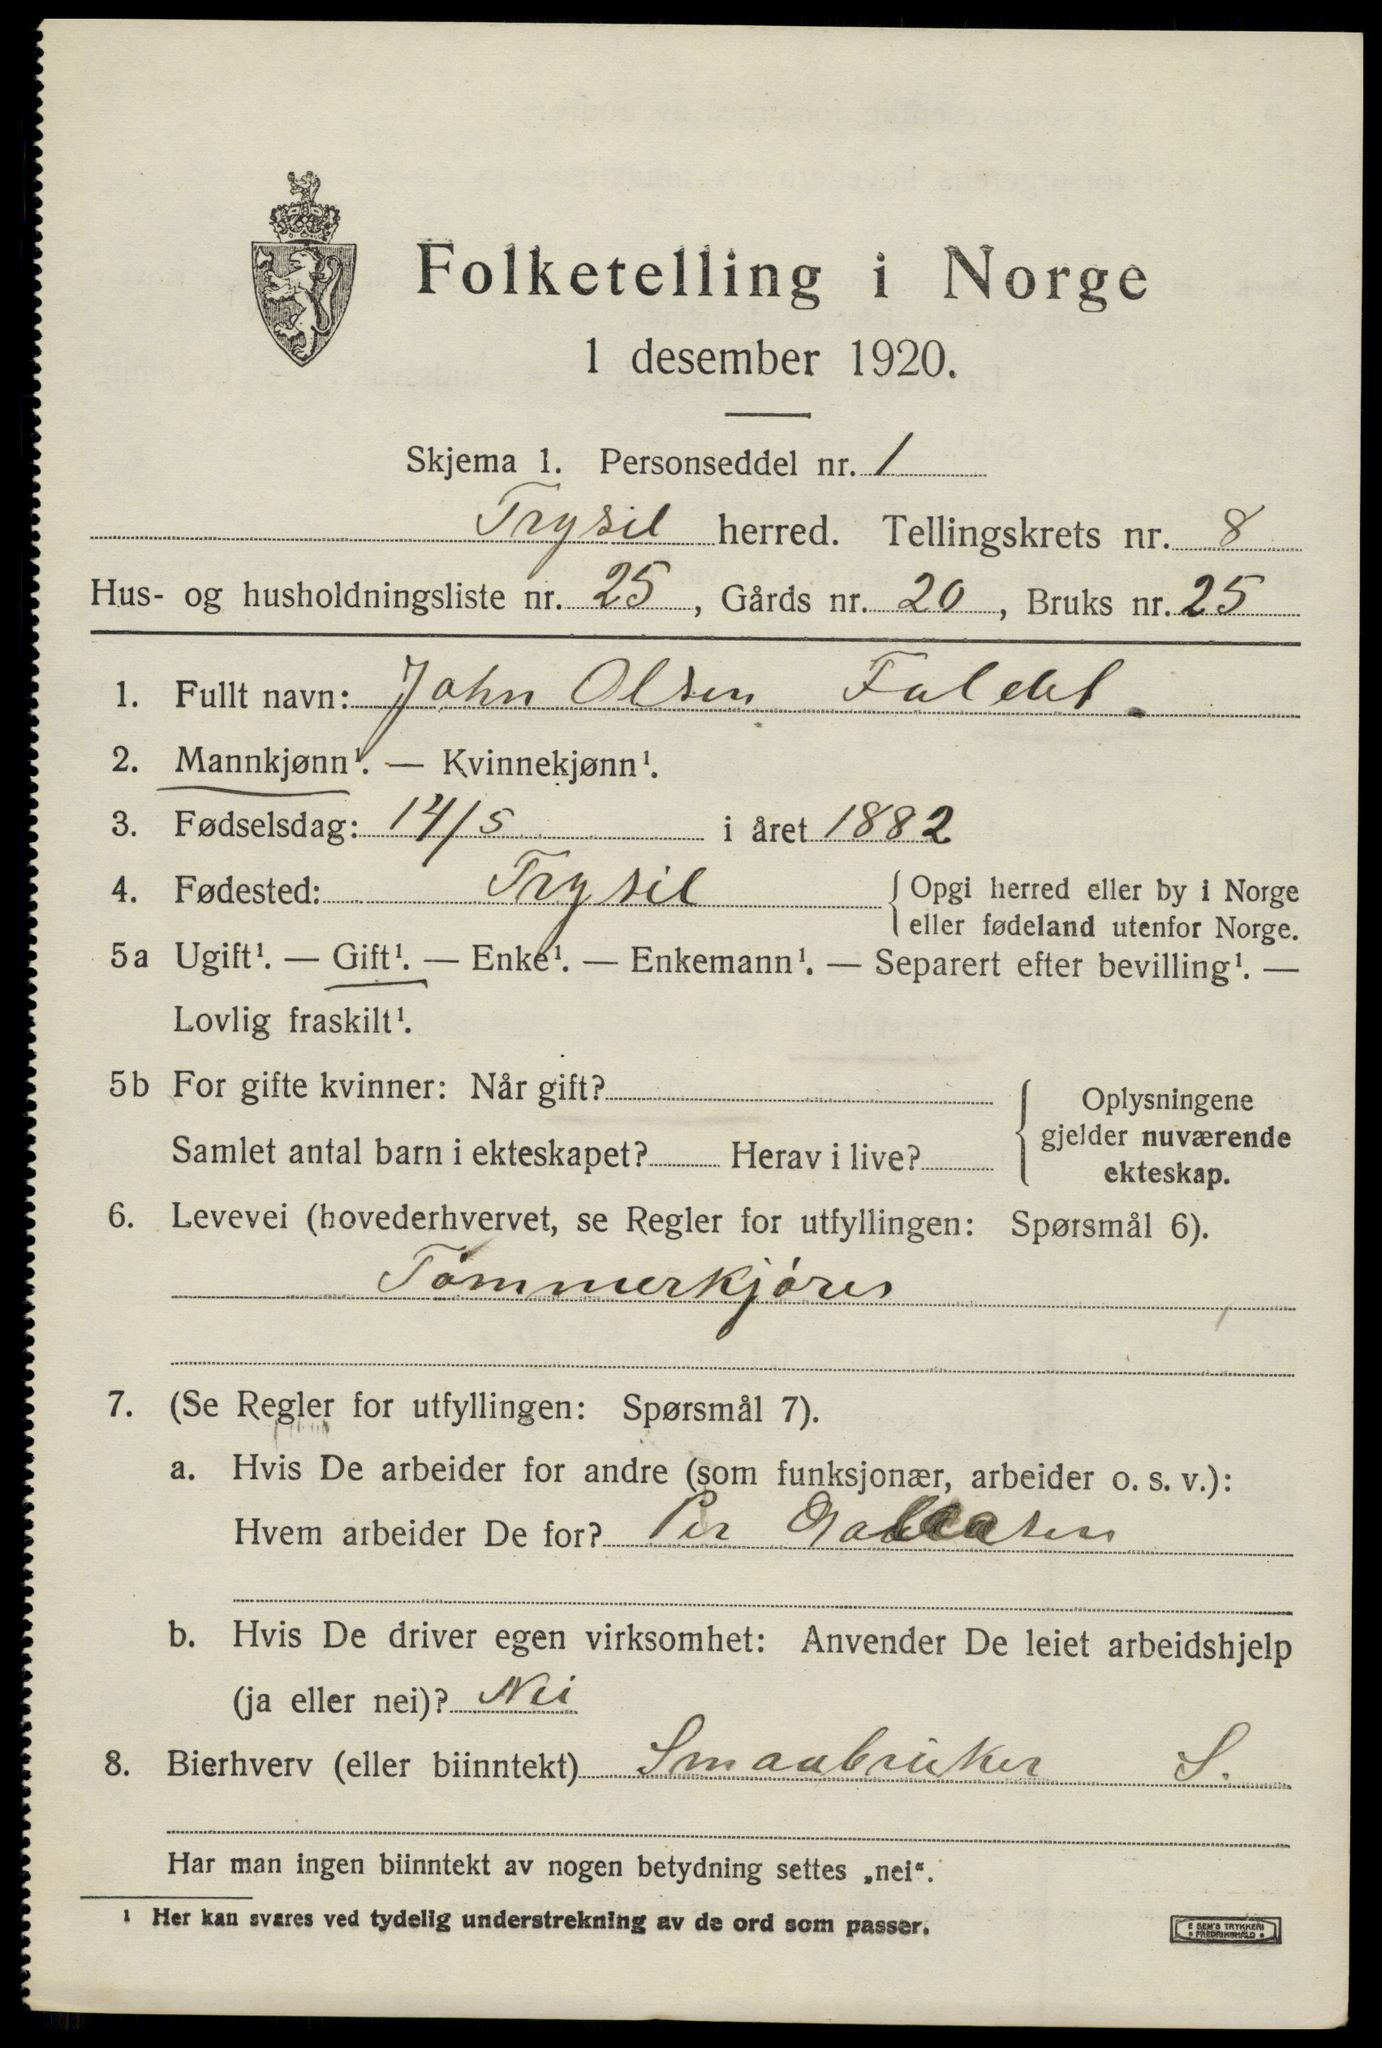 Folketelling i Norge
1 desember 1920.
Skjema 1. Personseddel nr. 1
Trysil herred. Tellingskrets nr. 8
Hus- og husholdningsliste nr. 25, Gårds nr. 20, Bruks nr. 25
1. Fullt navn: John Olsen Faldet.
2. Mannkjønn¹. — Kvinnekjønn¹.
3. Fødselsdag: 14/5 i året 1882
4. Fødested: Trysil { Opgi herred eller by i Norge
eller fødeland utenfor Norge.
5a Ugift¹. — Gift¹. — Enke¹. — Enkemann¹. — Separert efter bevilling¹. —
Lovlig fraskilt¹.
5b For gifte kvinner: Når gift?
Samlet antal barn i ekteskapet? Herav i live?
Oplysningene
gjelder nuværende
ekteskap.
6. Levevei (hovederhvervet, se Regler for utfyllingen: Spørsmål 6).
Tømmerkjører
7. (Se Regler for utfyllingen: Spørsmål 7).
a. Hvis De arbeider for andre (som funksjonær, arbeider o. s. v.):
Hvem arbeider De for? Per
b. Hvis De driver egen virksomhet: Anvender De leiet arbeidshjelp
(ja eller nei)? Nei
8. Bierhverv (eller biinntekt) Smaabruker S.
Har man ingen biinntekt av nogen betydning settes „nei“.
¹ Her kan svares ved tydelig understrekning av de ord som passer.
E SEM'S TRYKKERI
FREDRIKSHALD